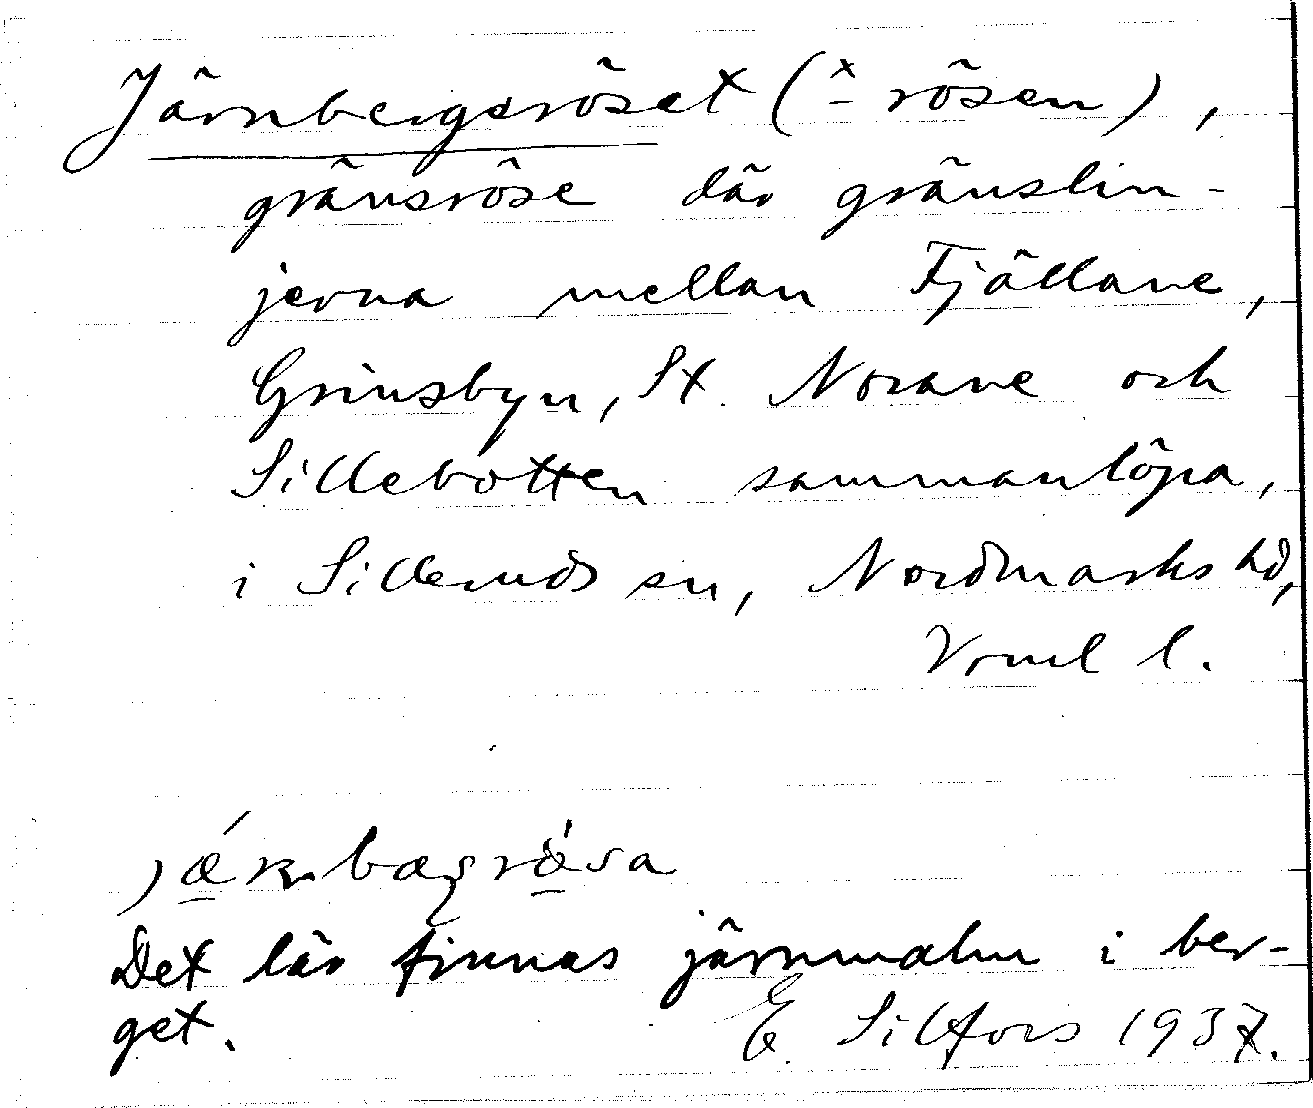 Järnbergsröset (x̂ - rösen),
gränsröse där gränslin-
jerna mellan Fjällane,
Grinsbyn, St. Norane och
Sillebotten sammanlöpa,
i Sillerud sn, Nordmarks hd,
Vrml l.
Det lär finnas järnmalm i ber-
get. E. Silfors 1937.